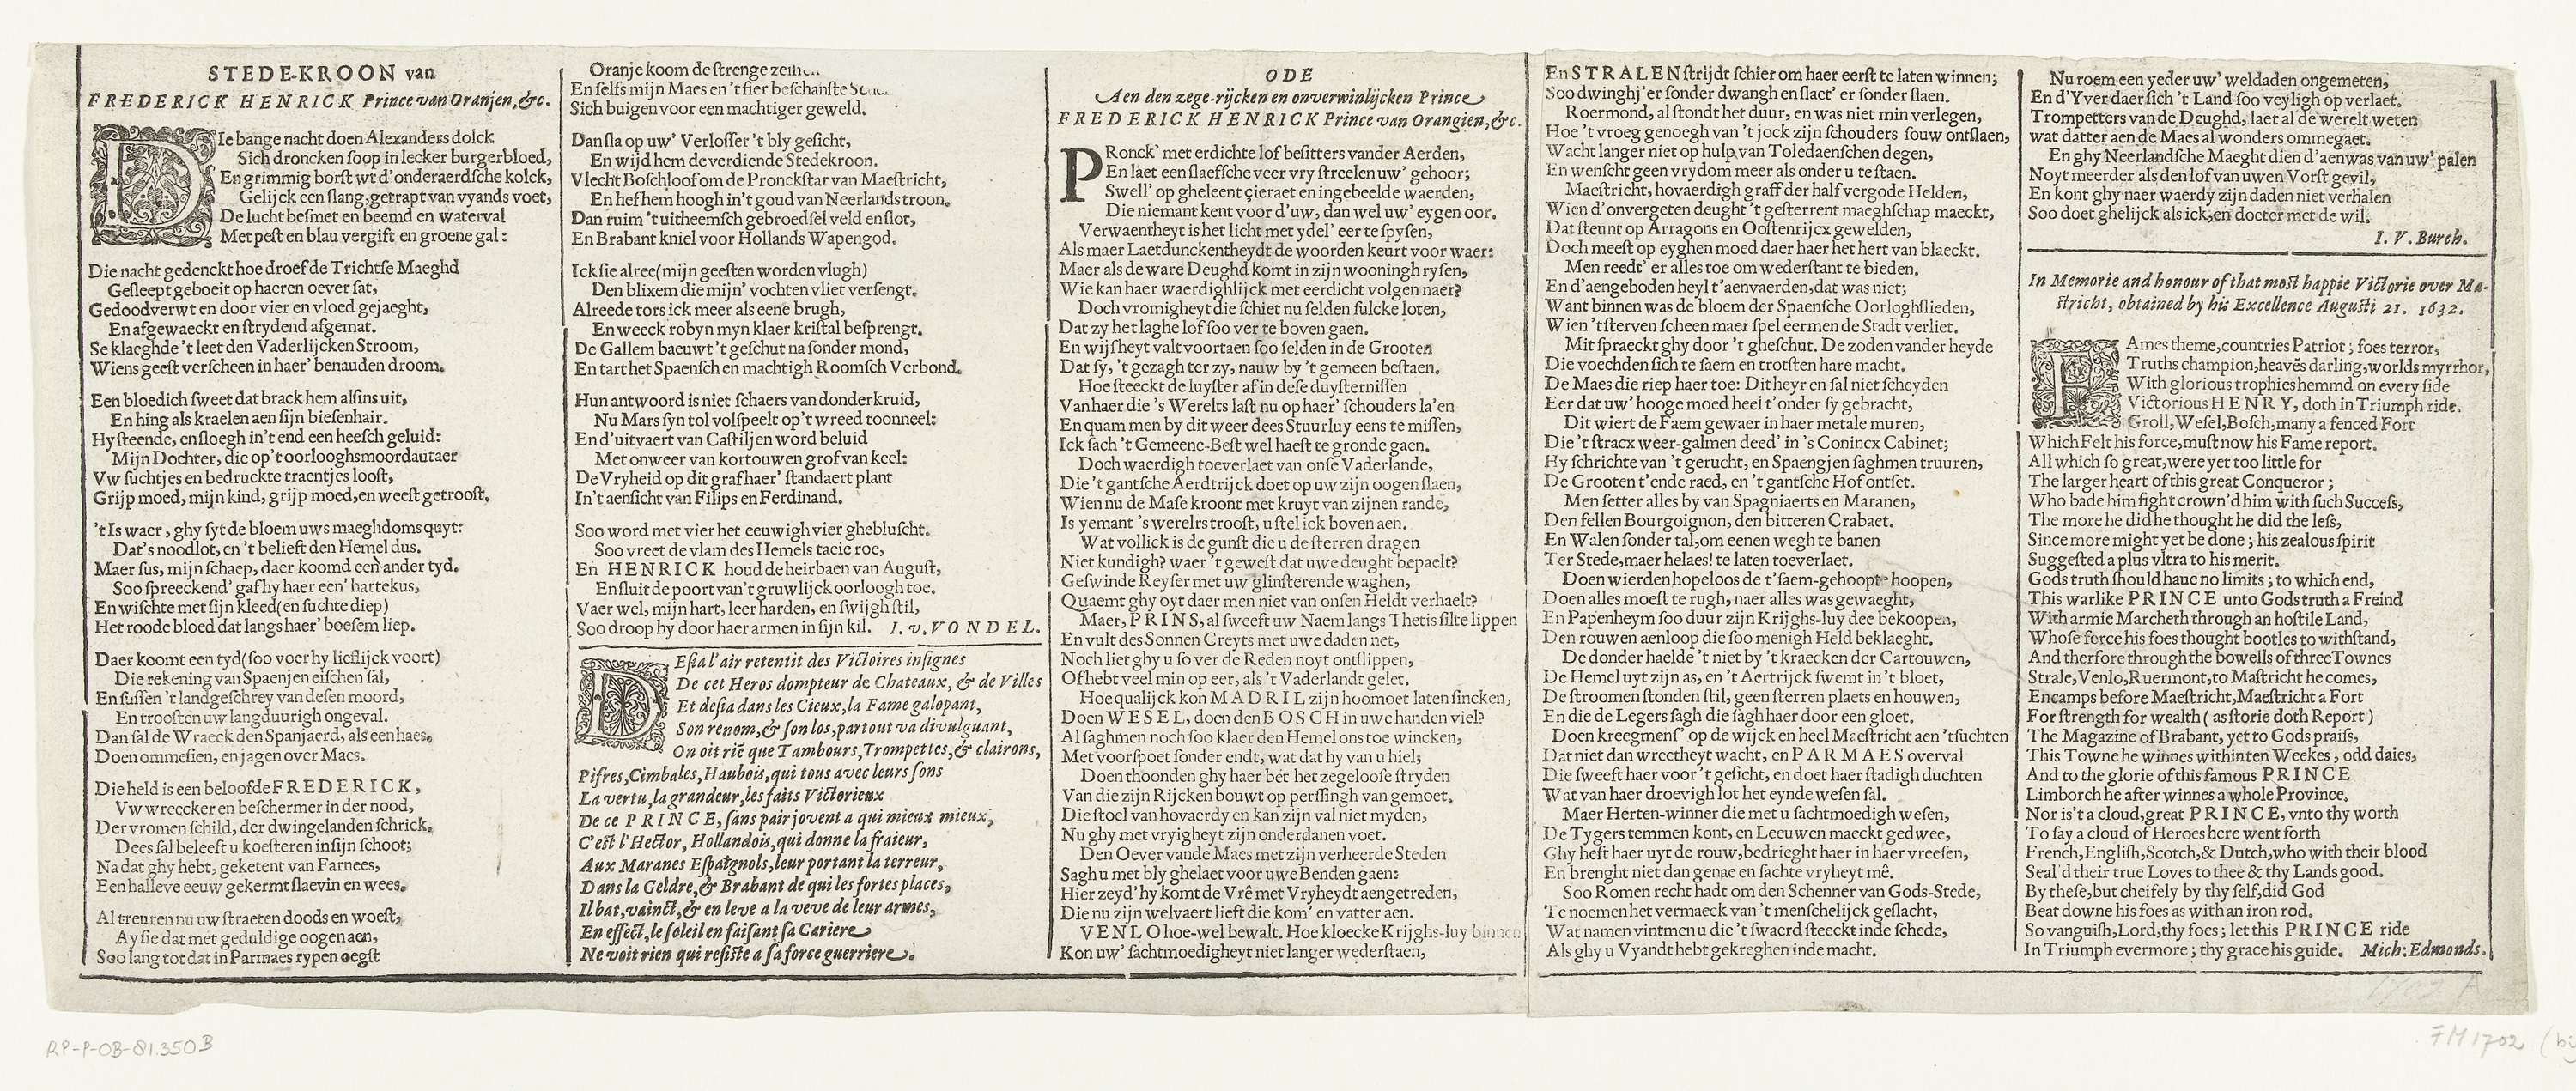 STEDE-KROON van
FREDERICK HENRICK Prince van Oranjen, &c.
DIe bange nacht doen Alexanders dolck
Sich droncken soop in lecker burgerbloed,
En grimmig borst wt d'onderaerdsche kolck,
Gelijck een slang, getrapt van vyands voet,
De lucht besmet en beemd en waterval
Met pest en blau vergift en groene gal:
Die nacht gedenckt hoe droef de Trichtse Maeghd
Gesleept geboeit op haeren oever sat,
Gedoodverwt en door vier en vloed gejaeght,
En afgewaeckt en strydend afgemat.
Se klaeghde 't leet den Vaderlijcken Stroom,
Wiens geest verscheen in haer' benauden droom.
Een bloedich sweet dat brack hem alsins uit,
En hing als kraelen aen sijn biesenhair.
Hy steende, en sloegh in't end een heesch geluid:
Mijn Dochter, die op't oorlooghsmoordautaer
Vw suchtjes en bedruckte traentjes loost,
Grijp moed, mijn kind, grijp moed, en weest getroost.
't Is waer, ghy syt de bloem uws maeghdoms quyt:
Dat's noodlot, en 't belieft den Hemel dus.
Maer sus, mijn schaep, daer koomd een ander tyd.
Soo spreeckend' gaf hy haer een' hartekus,
En wischte met sijn kleed (en suchte diep)
Het roode bloed dat langs haer' boesem liep.
Daer koomt een tyd (soo voer hy lieflijck voort)
Die rekening van Spaenjen eischen sal,
En sussen 't landgeschrey van desen moord,
En troosten uw langduurigh ongeval.
Dan sal de Wraeck den Spanjaerd, als een haes,
Doen ommesien, en jagen over Maes.
Die held is een beloofde FREDERICK,
Vw wreecker en beschermer in der nood,
Der vromen schild, der dwingelanden schrick.
Dees sal beleeft u koesteren in sijn schoot;
Na dat ghy hebt, geketent van Farnees,
Een halleve eeuw gekermt slaevin en wees.
Al treuren nu uw straeten doods en woest,
Ay sie dat met geduldige oogen aen,
Soo lang tot dat in Parmaes rypen oegst
Oranje koom de strenge
En selfs mijn Maes en 't fier beschanste
Sich buigen voor een machtiger geweld.
Dan sla op uw' Verlosser 't bly gesicht,
En wijd hem de verdiende Stedekroon.
Vlecht Boschloof om de Pronckstar van Maestricht,
En hef hem hoogh in't goud van Neerlands troon.
Dan ruim 't uitheemsch gebroedsel veld en slot,
En Brabant kniel voor Hollands Wapengod.
Ick sie alree (mijn geesten worden vlugh)
Den blixem die mijn' vochten vliet versengt.
Alreede tors ick meer als eene brugh,
En weeck robyn myn klaer kristal besprengt.
De Gallem baeuwt 't geschut na sonder mond,
En tart het Spaensch en machtigh Roomsch Verbond.
Hun antwoord is niet schaers van donderkruid,
Nu Mars syn tol volspeelt op't wreed toonneel:
En d'uitvaert van Castiljen word beluid
Met onweer van kortouwen grof van keel:
De Vryheid op dit graf haer' standaert plant
In't aensicht van Filips en Ferdinand.
Soo word met vier het eeuwigh vier gheblusht.
Soo vreet de vlam des Hemels taeie roe,
En HENRICK houd de heirbaen van August,
En sluit de poort van't gruwlijck oorloogh toe.
Vaer wel, mijn hart, leer harden, en swijgh stil,
Soo droop hy door haer armen in sijn kil. I. v. VONDEL.
DEsia l'air retentit des Victoires insignes
De cet Heros dompteur de Chateaux, & de Villes
Et desia dans les Cieux, la Fame galopant,
Son renom, & son los, partout va divulguant,
On oit riē que Tambours, Trompettes, & clairons,
Pifres, Cimbales, Haubois, qui tous avec leurs sons
La vertu, la grandeur, les faits Victorieux
De ce PRINCE, sans pair jovent a qui mieux mieux,
C'est l'Hector, Hollandois, qui donne la fraieur,
Aux Maranes Espagnols, leur portant la terreur,
Dans la Geldre, & Brabant de qui les fortes places,
Il bat, vainct, & en leve a la veve de leur armes,
En effect, le soleil en faisant sa Cariere
Ne voit rien qui resiste a sa force guerriere.
ODE
Aen den zege-rijcken en onverwinlijcken Prince
FREDERICK HENRICK Prince van Orangien, &c.
PRonck' met erdichte lof besitters vander Aerden,
En laet een slaefsche veer vry streelen uw' gehoor;
Swell' op gheleent çieraet en ingebeelde waerden,
Die niemant kent voor d'uw, dan wel uw' eygen oor.
Verwaentheyt is het licht met ydel' eer te spysen,
Als maer Laetdunckentheydt de woorden keurt voor waer:
Maer als de ware Deughd komt in zijn wooningh rysen,
Wie kan haer waerdighlijck met eerdicht volgen naer?
Doch vromigheyt die schiet nu selden sulcke loten,
Dat zy het laghe lof soo ver te boven gaen.
En wijsheyt valt voortaen soo selden in de Grooten
Dat sy, 't gezagh ter zy, nauw by 't gemeen bestaen.
Hoe steeckt de luyster af in dese duysternissen
Van haer die 's Werelts last nu op haer' schouders la'en
En quam men by dit weer dees Stuurluy eens te missen,
Ick sach 't Gemeene-Best wel haest te gronde gaen.
Doch waerdigh toeverlaet van onse Vaderlande,
Die 't gantsche Aerdtrijck doet op uw zijn oogen slaen,
Wien nu de Mase kroont met kruyt van zijnen rande,
Is yemant 's werelts troost, u stel ick boven aen.
Wat vollick is de gunst die u de sterren dragen
Niet kundigh? waer 't gewest dat uwe deught bepaelt?
Geswinde Reyser met uw glinsterende waghen,
Quaemt ghy oyt daer men niet van onsen Heldt verhaelt?
Maer, PRINS, al sweeft uw Naem langs Thetis silte lippen
En vult des Sonnen Creyts met uwe daden net,
Noch liet ghy u so ver de Reden noyt ontslippen,
Of hebt veel min op eer, als 't Vaderlandt gelet.
Hoe qualijck kon MADRIL zijn hoomoet laten sincken,
Doen WESEL, doen den BOSCH in uwe handen viel?
Al saghmen noch soo klaer den Hemel ons toe wincken,
Met voorspoet sonder endt, wat dat hy van u hiel;
Doen thoonden ghy haer bét het zegeloose stryden
Van die zijn Rijcken bouwt op perssingh van gemoet.
Die stoel van hovaerdy en kan zijn val niet myden,
Nu ghy met vryigheyt zijn onderdanen voet.
Den Oever vande Maes met zijn verheerde Steden
Sagh u met bly ghelaet voor uwe Benden gaen:
Hier zeyd' hy komt de Vrê met Vryheydt aengetreden,
Die nu zijn welvaert lieft die kom' en vatter aen.
VENLO hoe-wel bewalt. Hoe kloecke Krijghs-luy binnen
Kon uw' sachtmoedigheyt niet langer wederstaen,
En STRALEN strijdt schier om haer eerst te laten winnen;
Soo dwingh j'er sonder dwangh en slaet' er sonder slaen.
Roermond, al stondt het duur, en was niet min verlegen,
Hoe 't vroeg genoegh van 't jock zijn schouders souw ontslaen,
Wacht langer niet op hulp van Toledaenschen degen,
En wenscht geen vrydom meer als onder u te staen.
Maestricht, hovaerdigh graff der half vergode Helden,
Wien d'onvergeten deught 't gesterrent maeghschap maeckt,
Dat steunt op Arragons en Oostenrijcx gewelden,
Doch meest op eyghen moed daer haer het hert van blaeckt.
Men reedt' er alles toe om wederstant te bieden.
En d'aengeboden heyl t'aenvaerden, dat was niet;
Want binnen was de bloem der Spaensche Oorloghslieden,
Wien 't sterven scheen maer spel eermen de Stadt verliet.
Mit spraeckt ghy door 't gheschut. De zoden vander heyde
Die voechden sich te saem en trotsten hare macht.
De Maes die riep haer toe: Dit heyr en sal niet scheyden
Eer dat uw' hooge moed heel t'onder sy gebracht,
Dit wiert de Faem gewaer in haer metale muren,
Die 't stracx weer-galmen deed' in 's Conincx Cabinet;
Hy schrichte van 't gerucht, en Spaengjen saghmen truuren,
De Grooten t'ende raed, en 't gantsche Hof ontset.
Men setter alles by van Spagniaerts en Maranen,
Den fellen Bourgoignon, den bitteren Crabaet.
En Walen sonder tal, om eenen wegh te banen
Ter Stede, maer helaes! te laten toeverlaet.
Doen wierden hopeloos de t'saem-gehoopt-hoopen,
Doen alles moest te rugh, naer alles was gewaeght,
En Papenheym soo duur zijn Krijghs-luy dee bekoopen,
Den rouwen aenloop die soo menigh Held beklaeght.
De donder haelde 't niet by 't kraecken der Cartouwen,
De Hemel uyt zijn as, en 't Aertrijck swemt in 't bloet,
De stroomen stonden stil, geen sterren plaets en houwen,
En die de Legers sagh die sagh haer door een gloet.
Doen kreegmens' op de wijck en heel Maestricht aen 't suchten
Dat niet dan wreetheyt wacht, en PARMAES overval
Die sweeft haer voor 't gesicht, en doet haer stadigh duchten
Wat van haer droevigh lot het eynde wesen sal.
Maer Herten-winner die met u sachtmoedigh wesen,
De Tygers temmen kont, en Leeuwen maeckt gedwee,
Ghy heft haer uyt de rouw, bedrieght haer in haer vreesen,
En brenght niet dan genae en sachte vryheyt mê.
Soo Romen recht hadt om den Schenner van Gods-Stede,
Te noemen het vermaeck van 't menschelijck geslacht,
Wat namen vintmen u die 't swaerd steeckt inde schede,
Als ghy u Vyandt hebt gekreghen inde macht.
Nu roem een yeder uw' weldaden ongemeten,
En d'Yver daer sich 't Land soo veyligh op verlaet.
Trompetters van de Deughd, laet al de werelt weten
wat datter aen de Maes al wonders ommegaet.
En ghy Neerlandsche Maeght dien d'aenwas van uw' palen
Noyt meerder als den lof van uwen Vorst gevil,
En kont ghy naer waerdy zijn daden niet verhalen
Soo doet ghelijck als ick, en doeter met de wil.
I. V. Burch.
In Memorie and honour of that most happie Victorie over Ma-
stricht, obtained by his Excellence Augusti 21. 1632.
FAmes theme, countries Patriot; foes terror,
Truths champion, heavēs darling, worlds myrrhor,
With glorious trophies hemmd on every side
Victorious HENRY, doth in Triumph ride.
Groll, Wesel, Bosch, many a fenced Fort
Which Felt his force, must now his Fame report.
All which so great, were yet too little for
The larger heart of this great Conqueror;
Who bade him fight crown'd him with such Success,
The more he did he thought he did the less,
Since more might yet be done; his zealous spirit
Suggested a plus vltra to his merit.
Gods truth should haue no limits; to which end,
This warlike PRINCE unto Gods truth a Freind
With armie Marcheth through an hostile Land,
Whose force his foes thought bootles to withstand,
And therfore through the bowells of three Townes
Strale, Venlo, Ruermont, to Mastricht he comes,
Encamps before Maestricht, Maestricht a Fort
For strength for wealth (as storie doth Report)
The Magazine of Brabant, yet to Gods praiss,
This Towne he winnes within ten Weekes, odd daies,
And to the glorie of this famous PRINCE
Limborch he after winnes a whole Province.
Nor is't a cloud, great PRINCE, vnto thy worth
To say a cloud of Heroes here went forth
French, English, Scotch, & Dutch, who with their blood
Seal'd their true Loves to thee & thy Lands good.
By these, but cheifely by thy self, did God
Beat downe his foes as with an iron rod.
So vanquish, Lord, thy foes; let this PRINCE ride
In Triumph evermore; thy grace his guide. Mich: Edmonds.
1702 A
RP-P-OB-81.350B
FM 1702 (bij